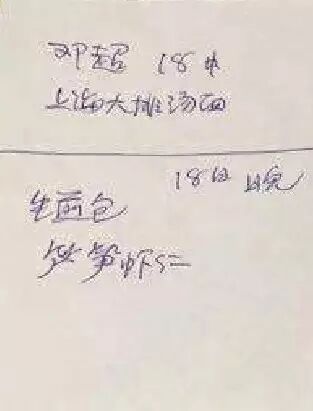 邓超 18中
上海大排汤面
18日 晚
面包
笋虾仁